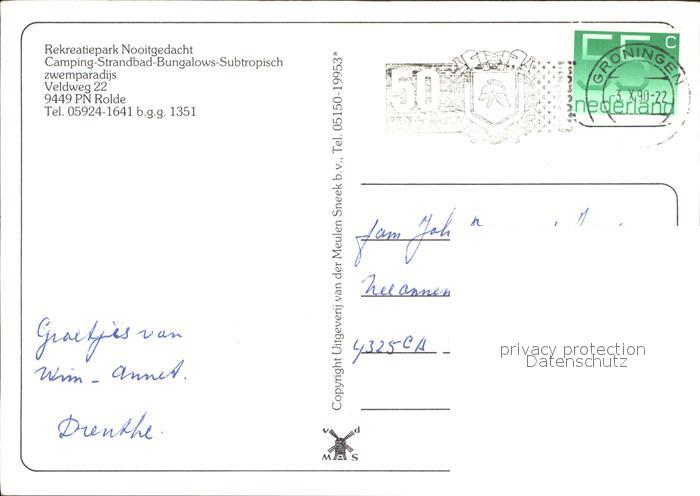 Rekreatiepark Nooitgedacht
Camping-Strandbad-Bungalows-Subtropisch
zwemparadijs
Veldweg 22
9449 PN Rolde
Tel. 05924-1641 b.g.g. 1351
50
GRONINGEN
3.X.90-22
55 c
nederland
Copyright Uitgeverij van der Meulen Sneek b.v., Tel. 05150-19953*
fam Joh
4325 CA
privacy protection
Datenschutz
Groetjes van
Wim - Annet.
Drenthe.
v d
M S